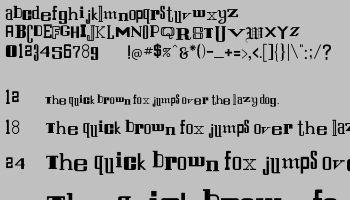 abcdefghijklmnopqrstuvwxyz
ABCDEFGHIJKLMNOPQRSTUVWXYZ
0123456789 !@#$%^&*()-_+=>,<.[]{}|\":;/?
12 The quick brown fox jumps over the lazy dog.
18 The quick brown fox jumps over the laz
24 The quick brown fox jumps o